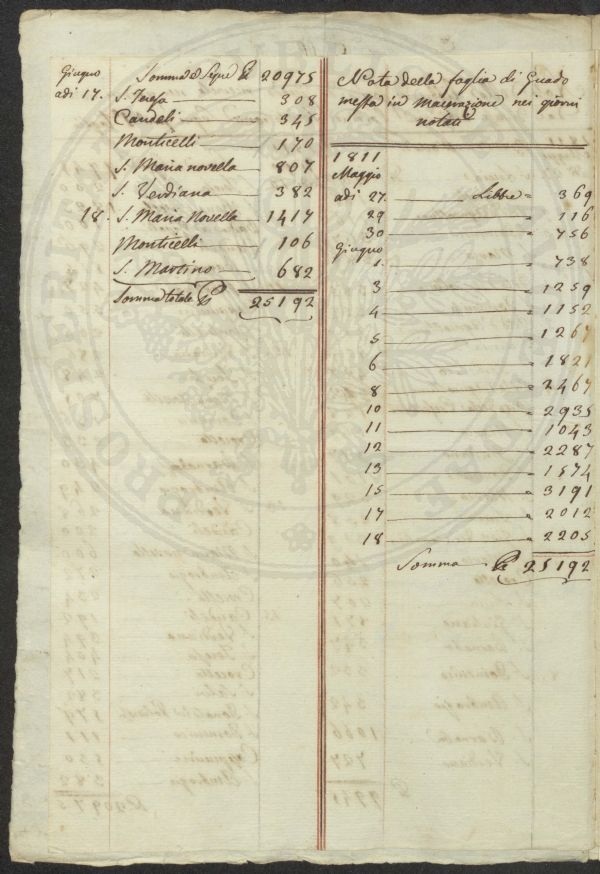 Giugno Somma e Segue ℔ 20975
adi 17. S. Teresa 308
Candeli 345
Monticelli 170
S. Maria novella 807
S. Verdiana 382
18. S. Maria Novella 1417
Monticelli 106
S. Martino 682
Somma totale ℔ 25192
Nota della foglia di Guado
messa in macerazione nei giorni
notati
1811
Maggio
adi 27. Libbre = 369
29 " 116
30 " 756
Giugno
1. " 738
3 " 1259
4 " 1152
5 " 1267
6 " 1821
8 " 2467
10 " 2935
11 " 1043
12 " 2287
13 " 1574
15 " 3191
17 " 2012
18 " 2205
Somma ℔ 25192